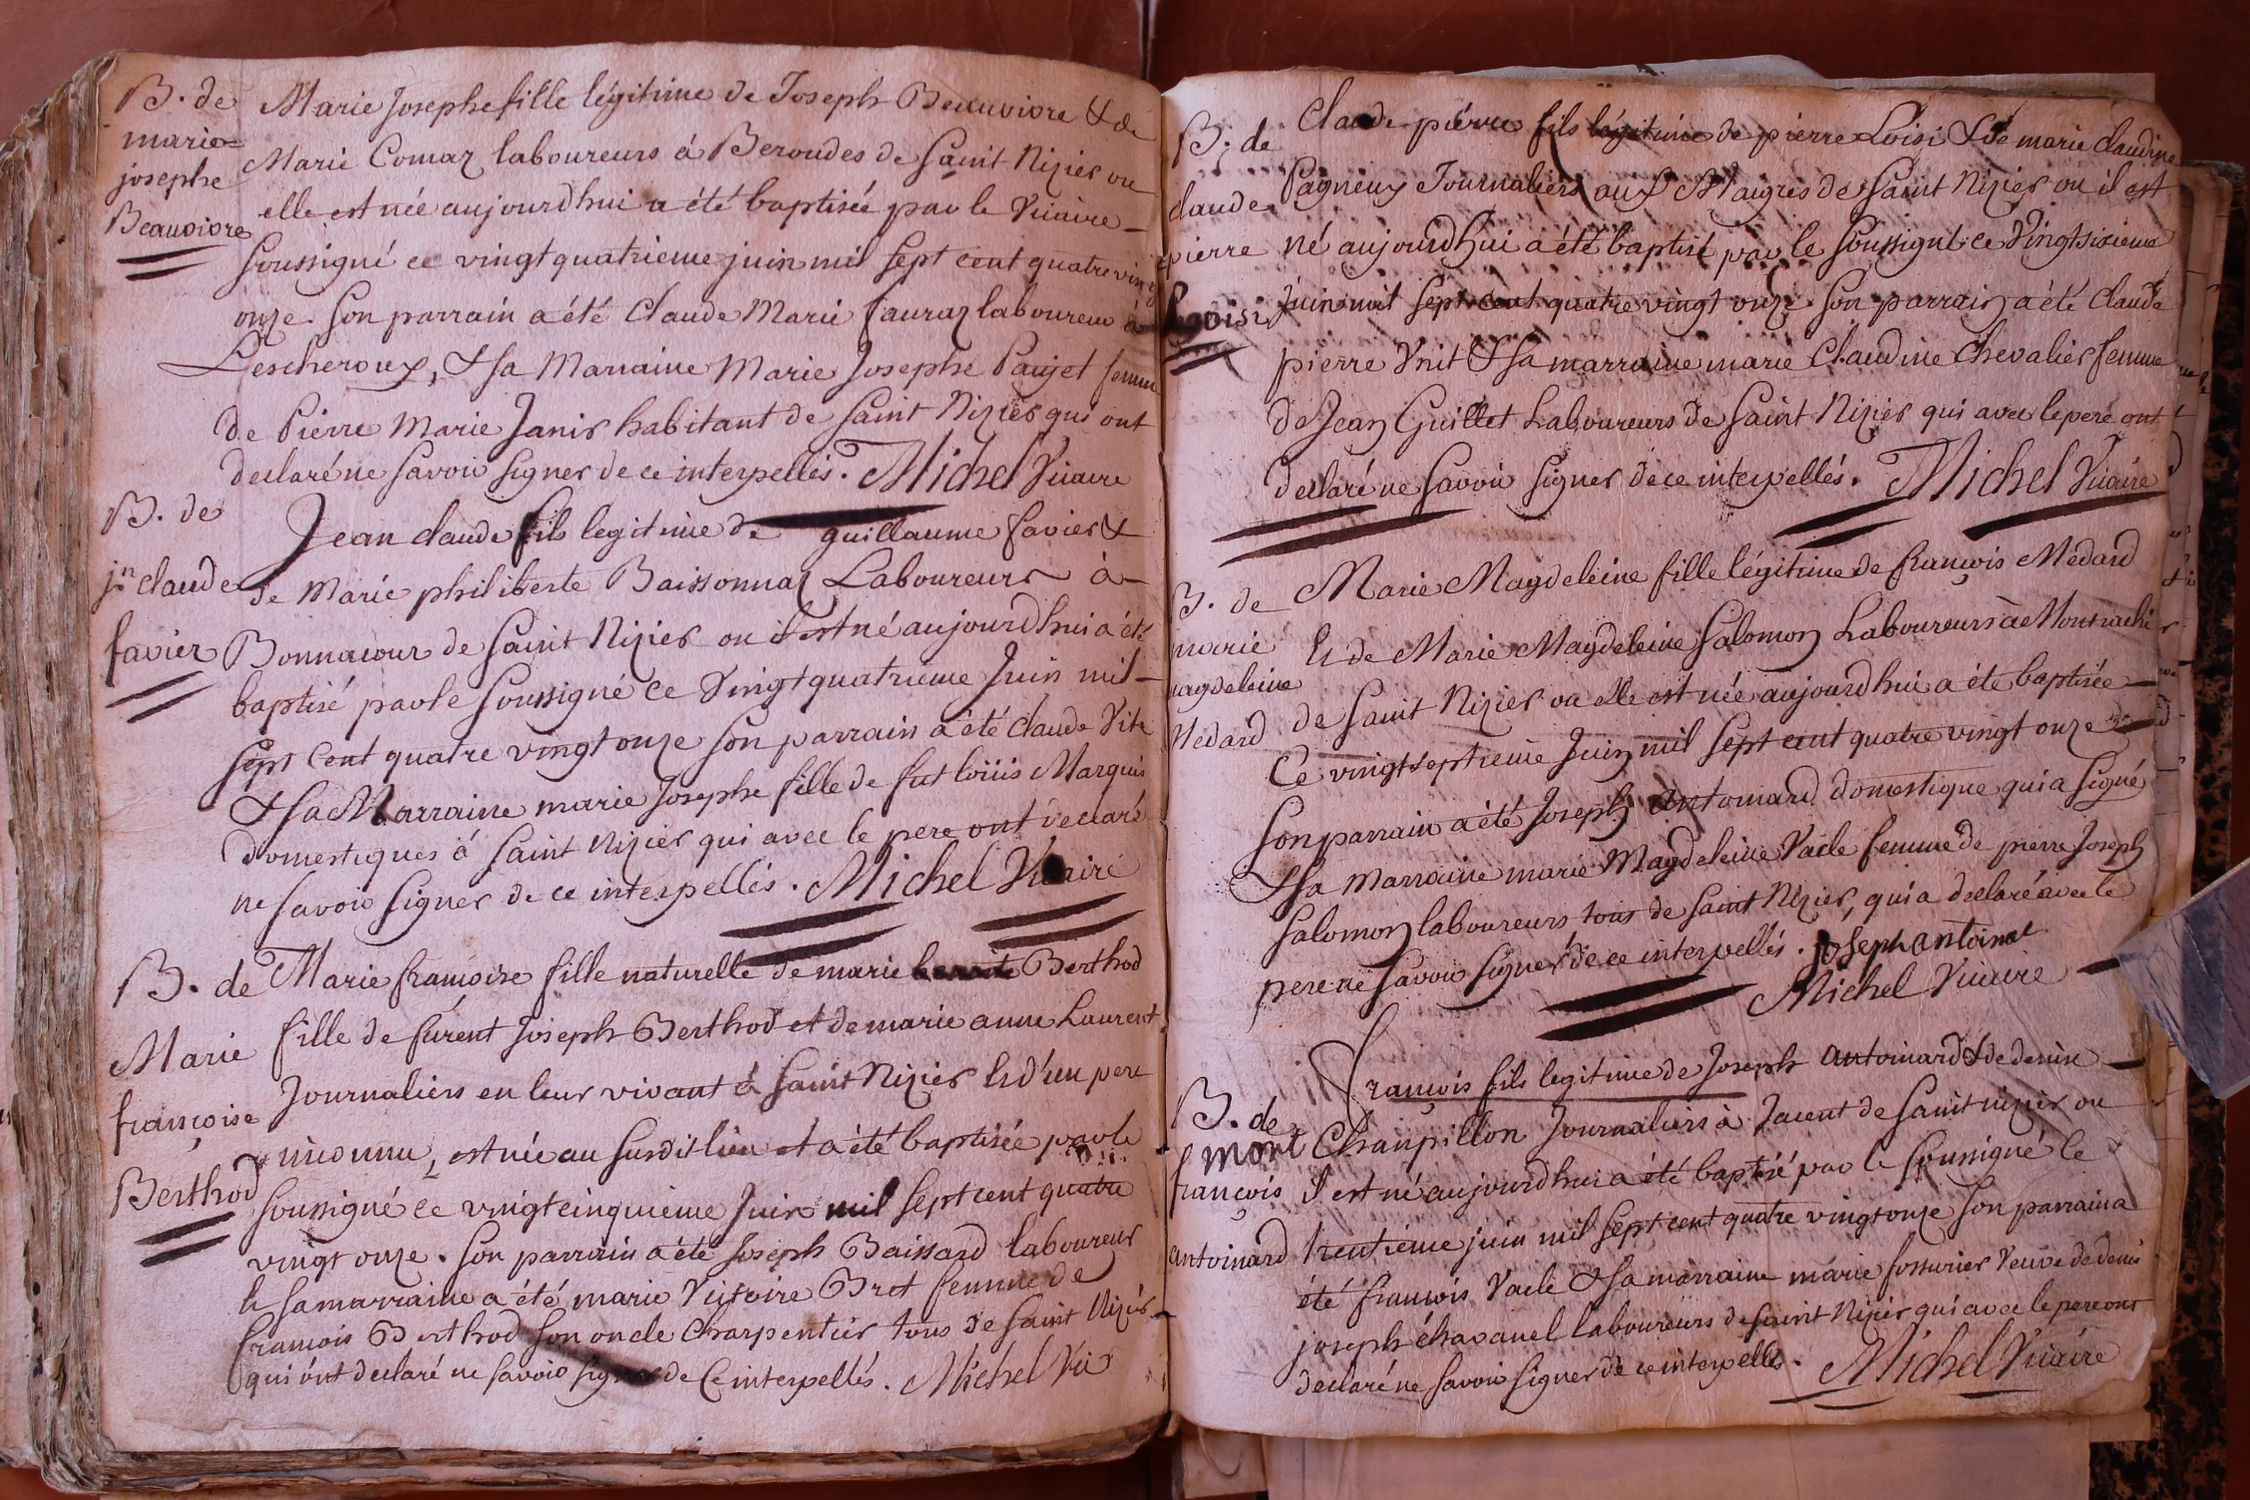 B. de
marie
josephe
Beauvoire
Marie Josephe fille légitime de Joseph Beauvoire & de
Marie Comaz laboureurs á Beroudes de Saint Nizier ou
elle est née aujourdhui a été baptisée par le Vicaire
Soussigné ce vingt quatrieme juin mil sept cent quatre vingt
onze. Son parrain a été Claude Marie fauraz laboureur à
Lescheroux, & sa Marraine Marie Josephe Paujet femme
de Pierre Marie Janir habitant de Saint Nizier qui ont
declaré ne savoir signer de ce interpellés. Michel Vicaire
B. de
jn claude
favier
Jean claude fils legitime de guillaume favier &
de Marie philiberte Baissonnaz Laboureurs à
Bonnacour de Saint Nizier ou il est né aujourdhui a été
baptisé par le Soussigné ce Vingt quatrieme Juin mil
sept Cent quatre vingt onze son parrain a été Claude Vite
& sa Marraine marie Josephe fille de fut loüis Marquis
domestiques á Saint Nizier qui avec le pere ont declaré
ne savoir signer de ce interpellés. Michel Vicaire
B. de
Marie
françoise
Berthod
Marie françoise fille naturelle de marie Berthod
fille de furent Joseph Berthod et de marie anne Laurent
Journaliers en leur vivant á Saint Nizier & d'un pere
inconnu, est née au susdit lieu et a été baptisée par le
soussigné ce vingt cinquieme Juin mil sept cent quatre
vingt onze. Son parrain a été Joseph Baissard laboureur
& sa marraine a été marie Victoire Brot femme de
francois Berthod son oncle charpentier tous de Saint Nizier
qui ont declaré ne savoir signer de Ce interpellés. Michel Vic
B. de
claude
pierre
Loisi
Claude pierre fils légitime de pierre Loisi & de marie Claudine
Pagneux Journaliers aux Maigres de Saint Nizier ou il est
né aujourdhui a été baptisé par le Soussigné ce Vingt sixieme
Juin mil sept cent quatre vingt onze. Son parrain a été Claude
pierre Vuit & sa marraine marie Claudine Chevalier femme
de Jean Guillet Laboureurs de Saint Nizier qui avec le pere ont
declaré ne savoir signer de ce interpellés. Michel Vicaire
B. de
marie
magdeleine
Médard
Marie Magdeleine fille légitime de françois Médard
& de Marie Magdeleine Salomon Laboureurs à Montrachier
de Saint Nizier ou elle est née aujourdhui a été baptisée
Ce vingt septieme Juin mil sept cent quatre vingt onze
Son parrain a été Joseph Antoinard domestique qui a signé
& sa marraine marie Magdeleine Vacle femme de pierre Joseph
Salomon laboureurs tous de Saint Nizier, qui a declaré avec le
pere ne savoir signer de ce interpellés. joseph antoinat
Michel Vicaire
B. de
mort
françois
antoinard
François fils legitime de Joseph antoinard & de denise
Chanpillon Journaliers à Jacent de Saint nizier ou
il est né aujourdhui a été baptisé par le soussigné le
trentieme juin mil sept cent quatre vingt onze son parrain a
été françois Vacle & sa marraine marie fossurier Veuve de denis
joseph échavanel laboureurs de Saint Nizier qui avec le pere ont
declaré ne savoir signer de ce interpellés. Michel Vicaire